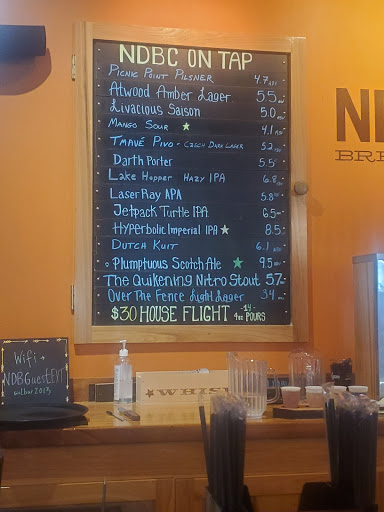 NDBC ON TAP
PICNIC POINT PILSNER 4.7 ABV
Atwood Amber Lager 5.5
Livacious Saison 5.0
MANGO SOUR ★ 4.1 ABV
TMAVÉ PIVO - CZECH DARK LAGER 5.2
Darth Porter 5.5
Lake Hopper HAZY IPA 6.8
LaserRay APA 5.8
Jetpack Turtle IPA 6.5
Hyperbolic Imperial IPA ★ 8.5
DUTCH KUIT 6.1
Plumptuous Scotch Ale ★ 9.5
The Quikening Nitro Stout 5.7
Over The Fence Light Lager 3.4
$30 HOUSE FLIGHT 4oz -14- POURS
BRE
Wifi →
NDBGuest
wilbur2013
★WHIS